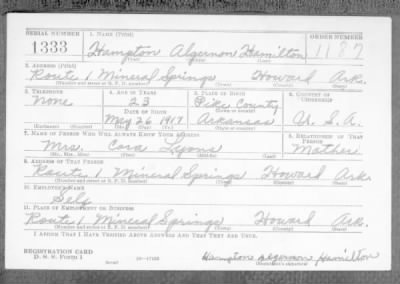 SERIAL NUMBER 1. NAME (Print) ORDER NUMBER
1333 Hampton Algernon Hamilton 1187
(First) (Middle) (Last)
2. ADDRESS (Print)
Route 1 Mineral Springs Howard Ark.
(Number and street or R. F. D. number) (Town) (County) (State)
3. TELEPHONE 4. AGE IN YEARS 5. PLACE OF BIRTH 6. COUNTRY OF CITIZENSHIP
None 23 Pike County
DATE OF BIRTH (Town or county)
May 26 1917 Arkansas U. S. A.
(Exchange) (Number) (Mo.) (Day) (Yr.) (State or country)
7. NAME OF PERSON WHO WILL ALWAYS KNOW YOUR ADDRESS 8. RELATIONSHIP OF THAT PERSON
Mrs. Cora Lyons Mother
(Mr., Mrs., Miss) (First) (Middle) (Last)
9. ADDRESS OF THAT PERSON
Route 1 Mineral Springs Howard Ark.
(Number and street or R. F. D. number) (Town) (County) (State)
10. EMPLOYER'S NAME
Self
11. PLACE OF EMPLOYMENT OR BUSINESS
Route 1 Mineral Springs Howard Ark.
(Number and street or R. F. D. number) (Town) (County) (State)
I AFFIRM THAT I HAVE VERIFIED ABOVE ANSWERS AND THAT THEY ARE TRUE.
REGISTRATION CARD
D. S. S. Form 1 Hampton Algernon Hamilton
(Registrant's signature)